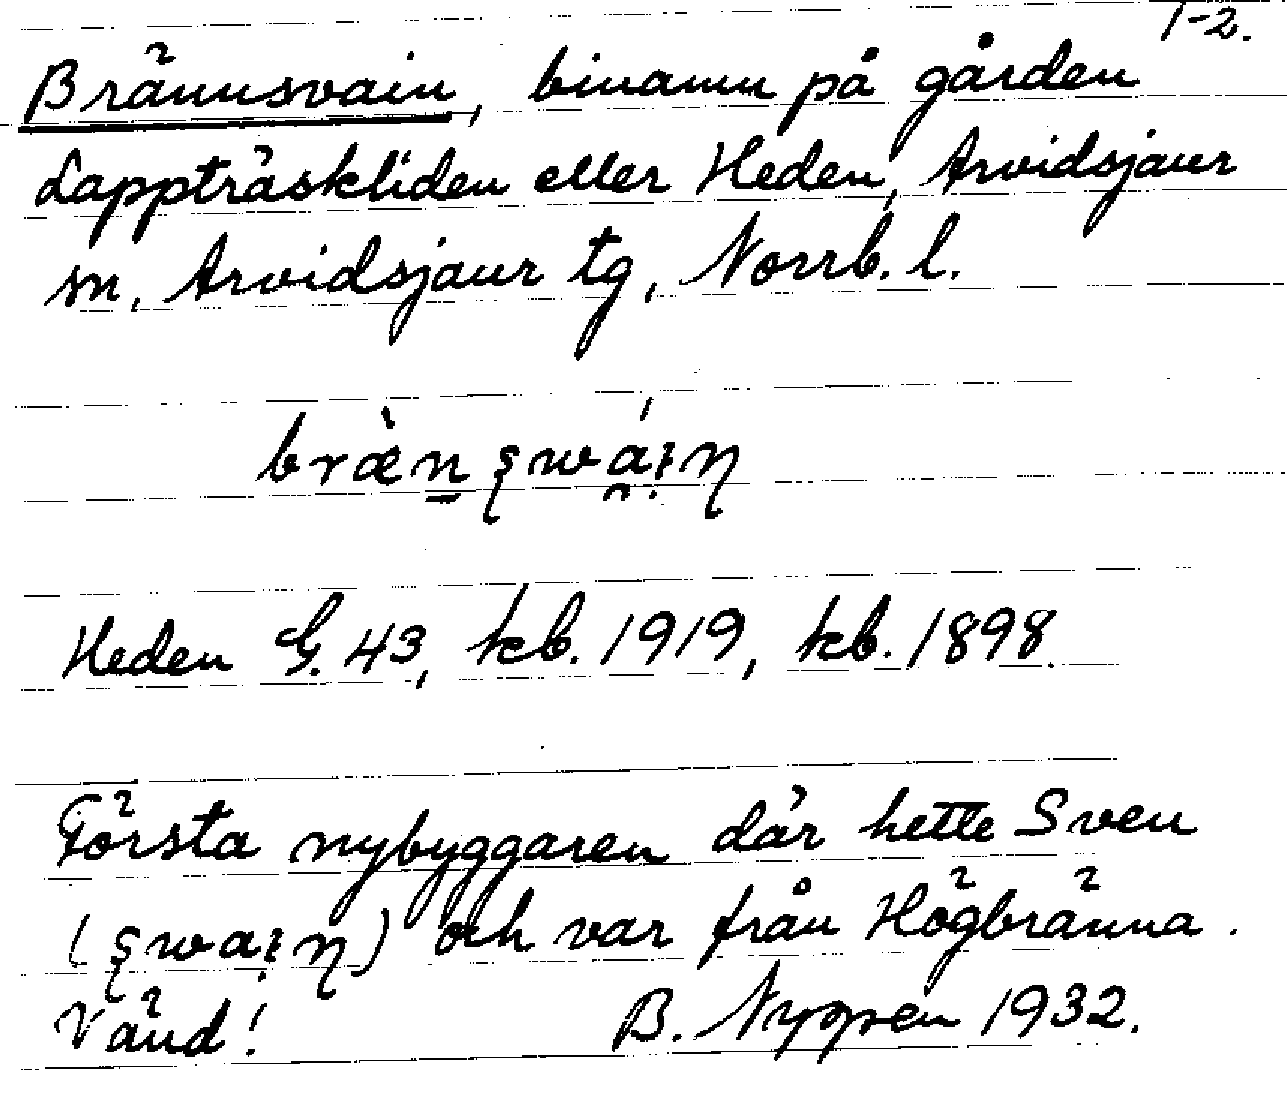 1-2.
Brännsvain, binamn på gården
Lappträskliden eller Heden, Arvidsjaur
sn, Arvidsjaur tg, Norrb. l.
Heden G. 43, kb. 1919, kb. 1898.
Första nybyggaren där hette Sven
och var från Högbränna.
Vänd! B. Nyppen 1932.